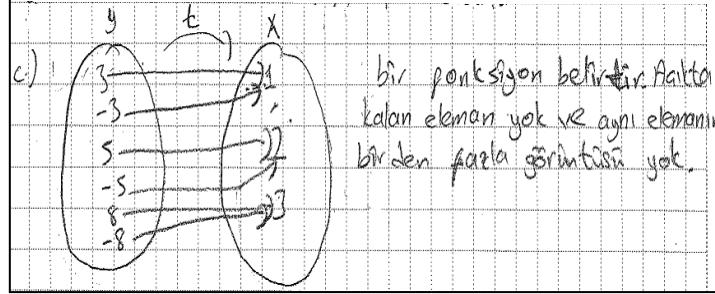 y t x
c)
3 1
-3
5 2
-5
8 3
-8
bir ponksiyon belirtir. Açıkta
kalan eleman yok ve aynı elemanın
birden fazla görüntüsü yok.